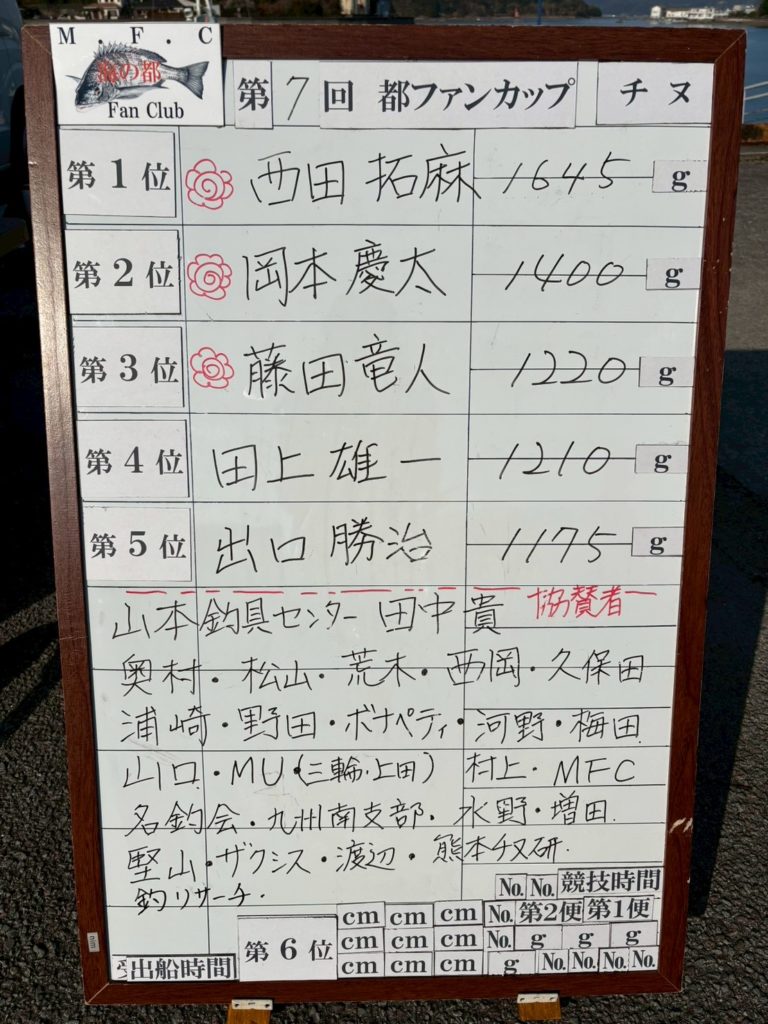 M.F.C
海の都
Fan Club
第7回 都ファンカップ チヌ
第1位 西田 拓麻 1645 g
第2位 岡本 慶太 1400 g
第3位 藤田 竜人 1220 g
第4位 田上 雄一 1210 g
第5位 出口 勝治 1175 g
山本釣具センター 田中貴 協賛者
奥村・松山・荒木・西岡・久保田
浦崎・野田・ボナペティ・河野・梅田
山口・MU(三輪・上田) 村上・MFC
名釣会・九州南支部・水野・増田
堅山・ザクシス・渡辺・熊本チヌ研
釣リサーチ・
No. No. 競技時間
cm cm cm No. 第2便 第1便
第6位 cm cm cm No. g g g
出船時間 cm cm cm g No. No. No. No.